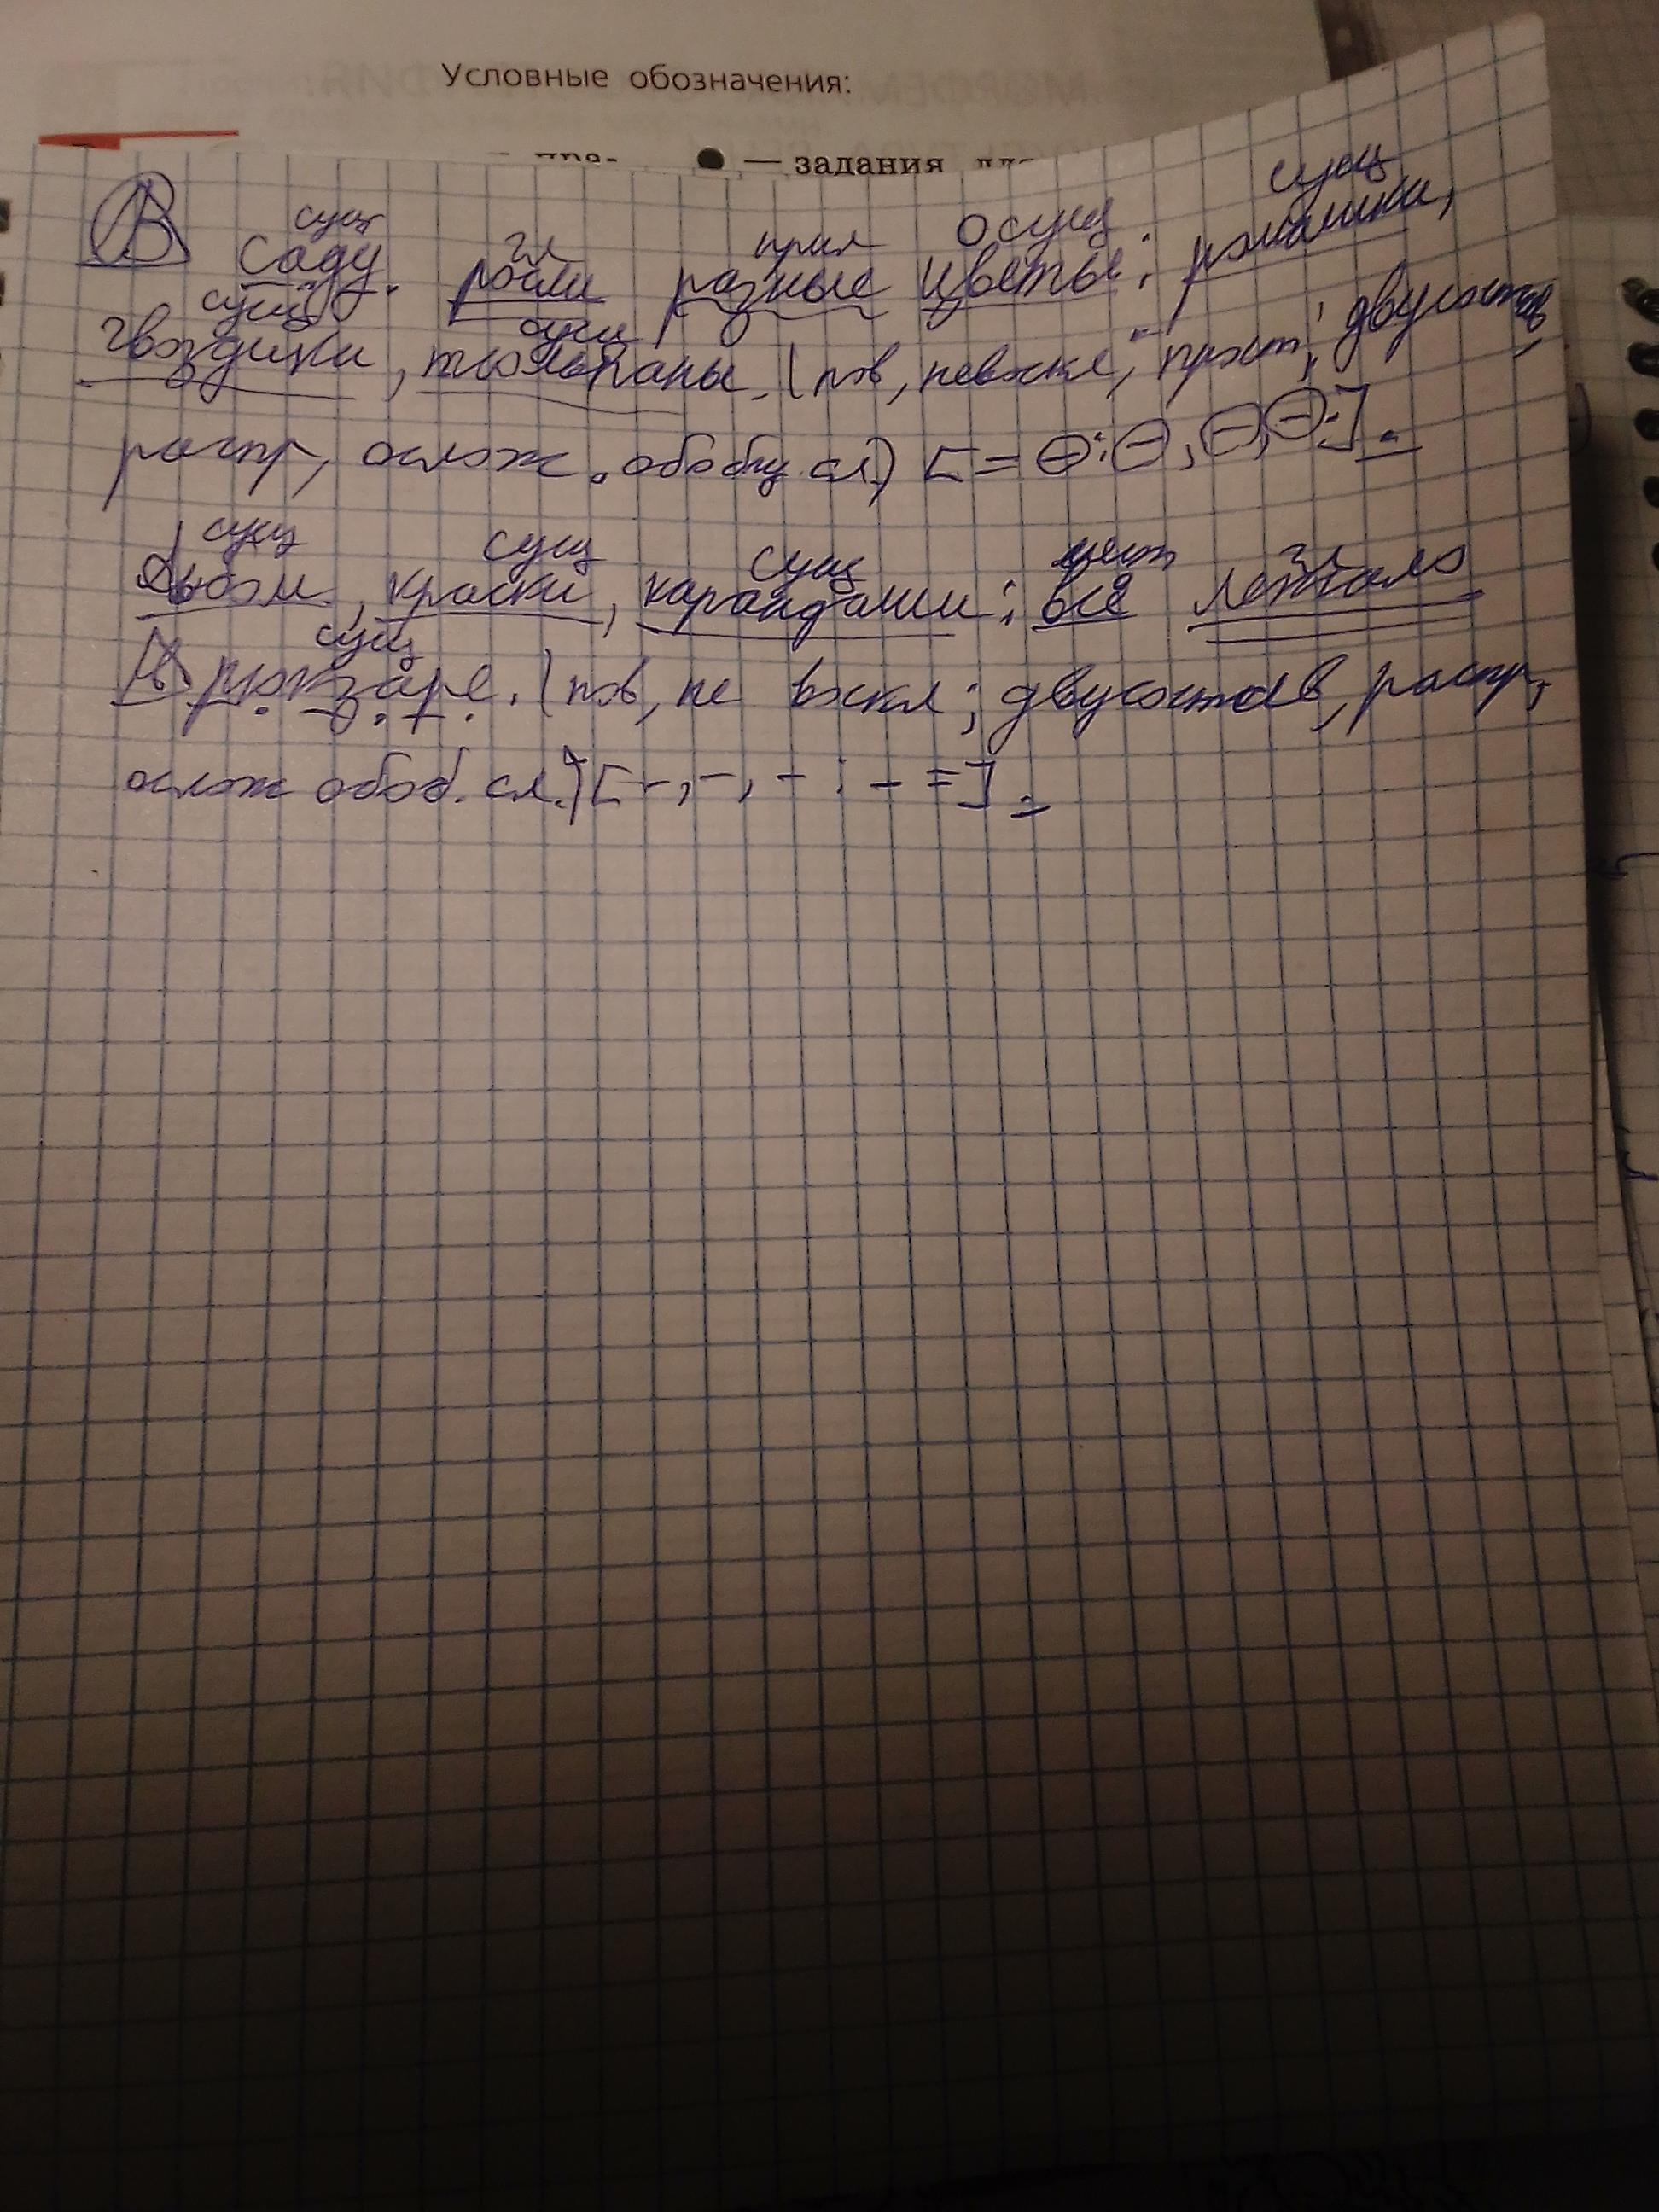 Условные обозначения:
— задания
сущ гл прил О сущ сущ
В саду росли разные цветы: ромашки,
сущ сущ
гвоздики, тюльпаны. (пов, невоскл, прост, двусостав,
распр, ослож. обобщ. сл.) [= ⊖:⊖, ⊖, ⊖:].
сущ сущ сущ мест гл
краски, карандаши: всё лежало
сущ
В рюкзаре. (пов, не воскл; двусостав, распр,
ослож обоб. сл.) [-, -, - : - =].